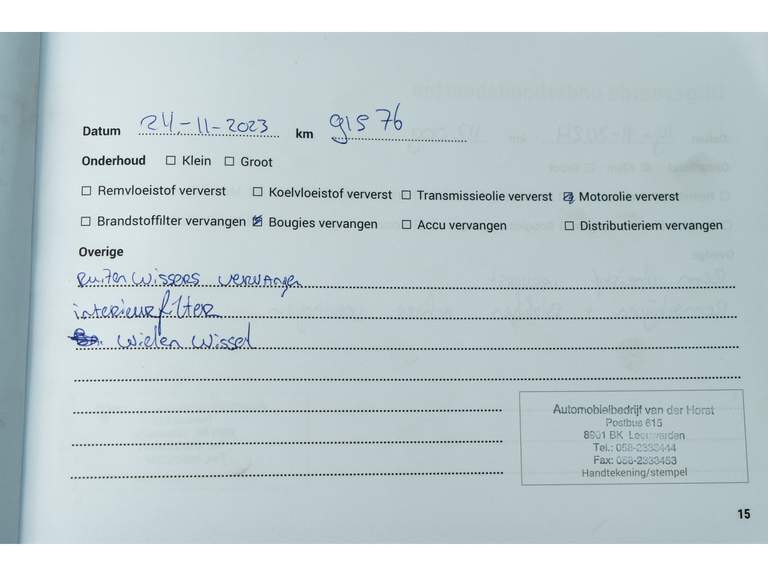 Datum 24-11-2023 km 91576
Onderhoud ☐ Klein ☐ Groot
☐ Remvloeistof ververst ☐ Koelvloeistof ververst ☐ Transmissieolie ververst ☑ Motorolie ververst
☐ Brandstoffilter vervangen ☑ Bougies vervangen ☐ Accu vervangen ☐ Distributieriem vervangen
Overige
Ruitenwissers vervangen
interieurfilter
wielen wissel
Automobielbedrijf van der Horst
Postbus 615
8901 BK Leeuwarden
Tel.: 058-2333444
Fax: 058-2333453
Handtekening/stempel
15